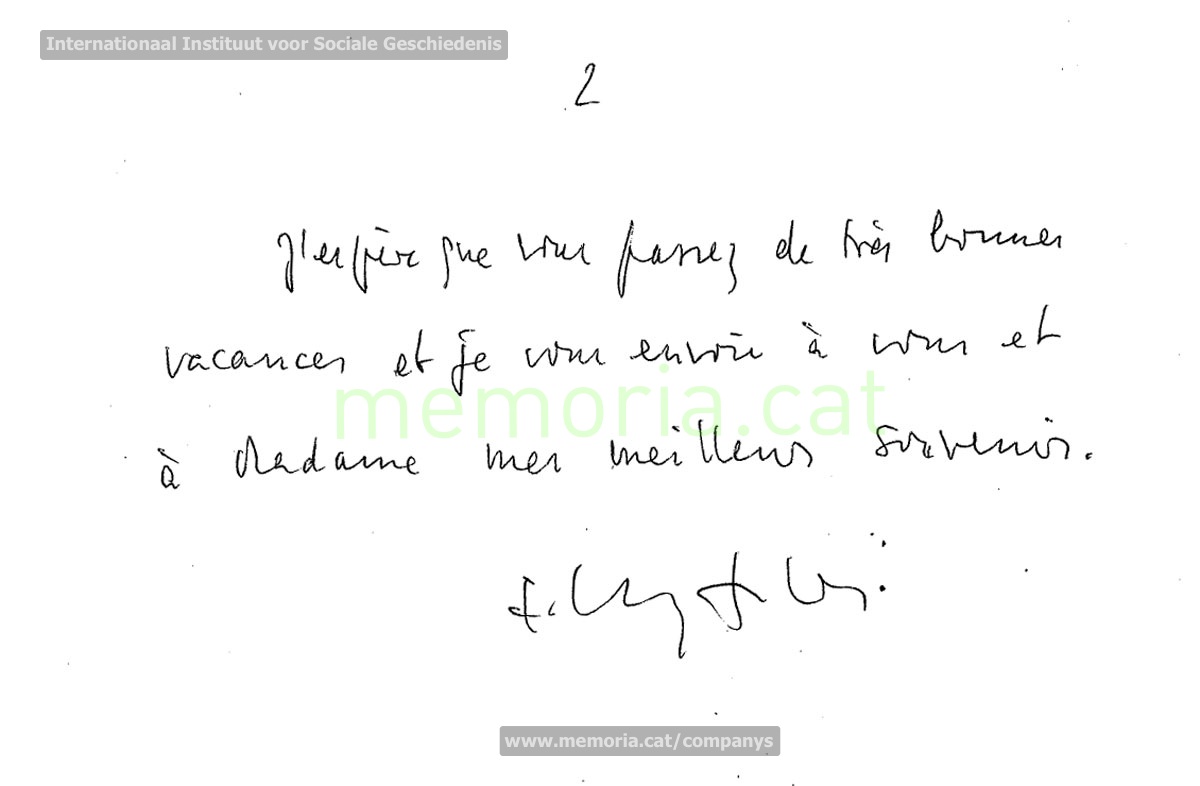 Internationaal Instituut voor Sociale Geschiedenis
2
J'espère que vous passez de très bonnes
vacances et je vous envoie à vous et
memoria.cat
à Madame mes meilleurs souvenirs.
www.memoria.cat/companys